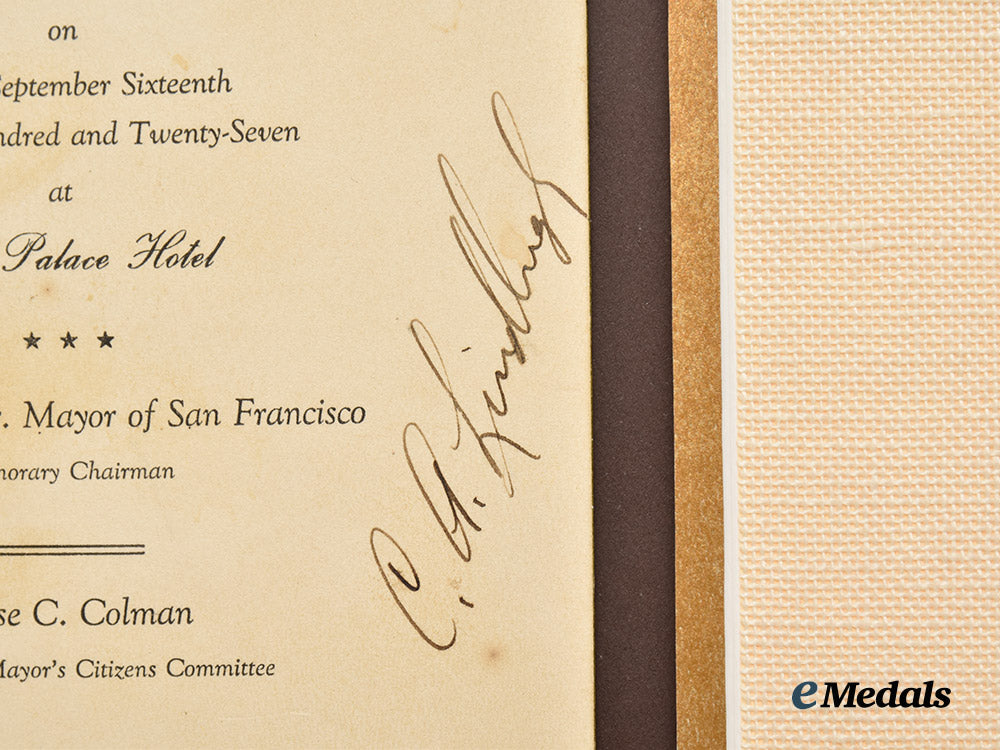 on
September Sixteenth
ndred and Twenty-Seven
at
Palace Hotel
★ ★ ★
. Mayor of San Francisco
norary Chairman
se C. Colman
Mayor's Citizens Committee
C. A. Lindbergh
eMedals